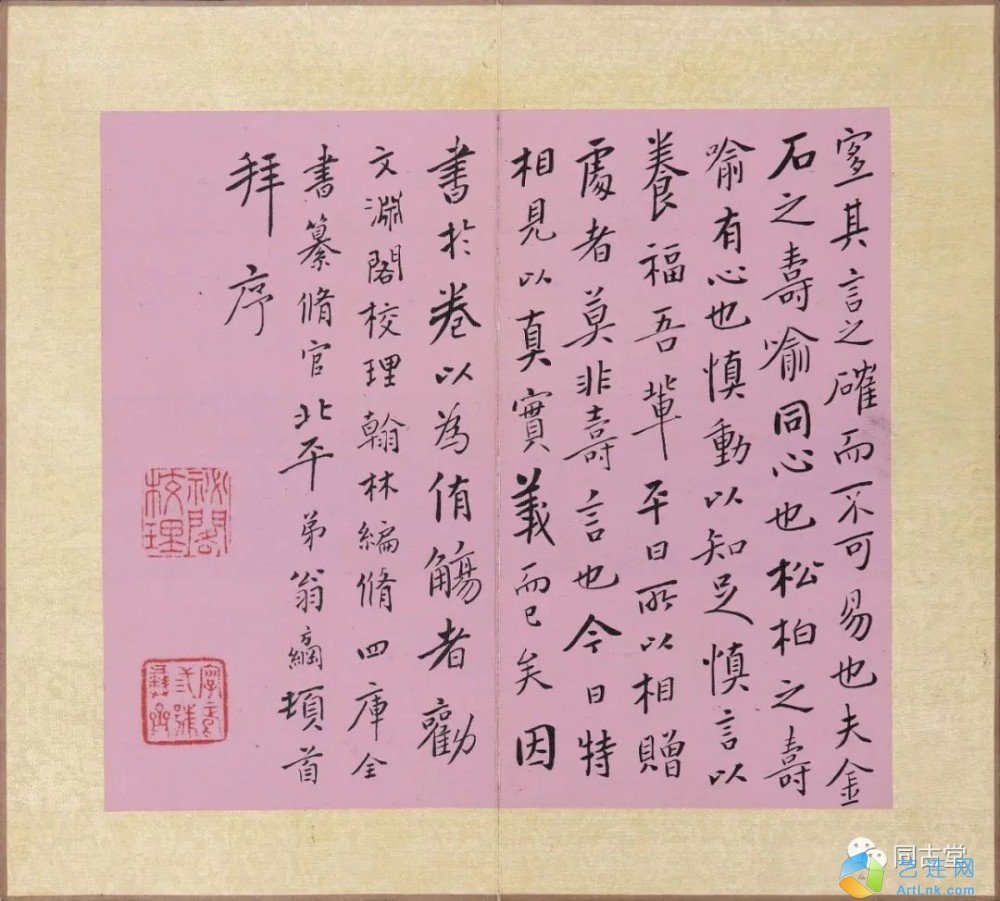 寔其言之確而不可易也夫金
石之壽喻同心也松柏之壽
喻有心也慎動以知足慎言以
養福吾輩平日所以相贈
處者莫非壽言也今日特
相見以真實義而已矣因
書於卷以為侑觴者勸
文淵閣校理翰林編脩四庫全
書纂脩官北平弟翁方綱頓首
拜序
祕閣
校理
同古堂
艺连网
ArtLnk.com